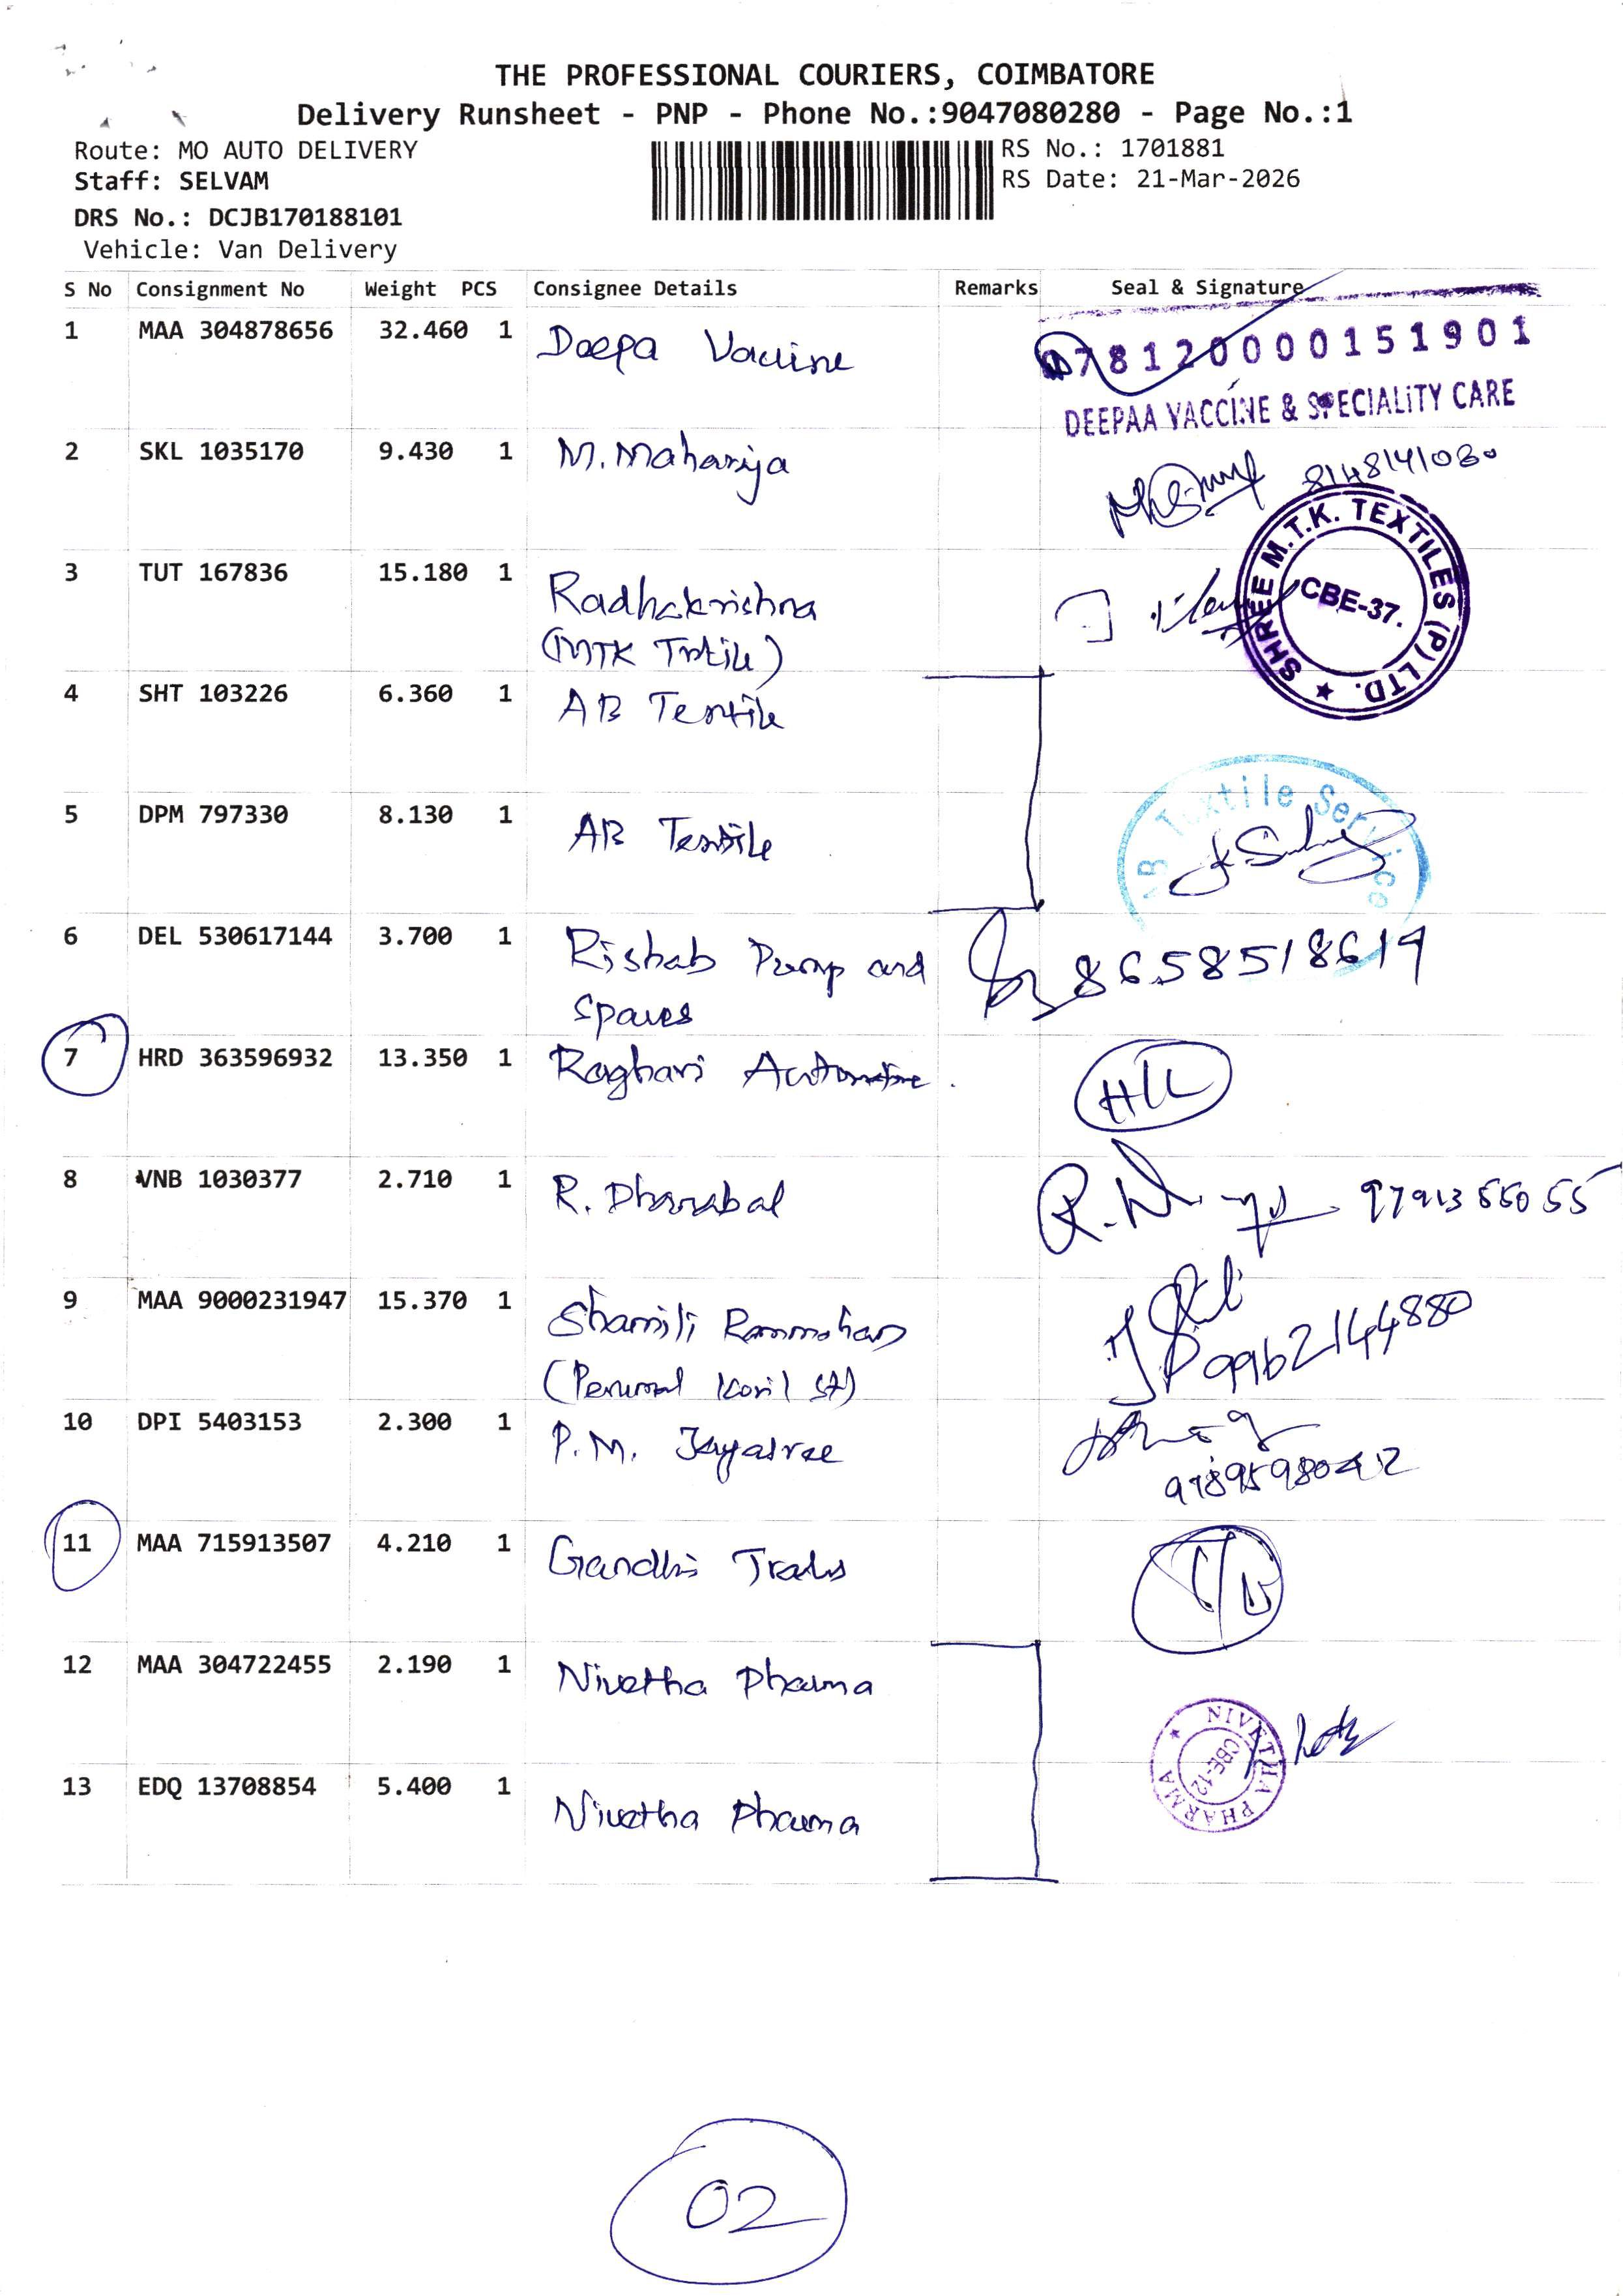 THE PROFESSIONAL COURIERS, COIMBATORE
Delivery Runsheet - PNP - Phone No.:9047080280 - Page No.:1
Route: MO AUTO DELIVERY
RS No.: 1701881
Staff: SELVAM
RS Date: 21-Mar-2026
DRS No.: DCJB170188101
Vehicle: Van Delivery
S No Consignment No Weight PCS Consignee Details Remarks Seal & Signature
1 MAA 304878656 32.460 1 Deepa Vaccine
078120000151901
DEEPAA VACCINE & SPECIALITY CARE
2 SKL 1035170 9.430 1 M. Maharija
8148141080
3 TUT 167836 15.180 1 Radhakrishna
(MTK Textile)
SHREE M.T.K. TEXTILES (P) LTD. CBE-37.
4 SHT 103226 6.360 1 AB Textile
5 DPM 797330 8.130 1 AB Textile
AB Textile Service
6 DEL 530617144 3.700 1 Rishab Pump and
Spares
8658518619
7 HRD 363596932 13.350 1 Raghavi Automotive
8 VNB 1030377 2.710 1 R. Dhanabal
9 MAA 9000231947 15.370 1 Shamili Rammohan
(Perumal Kovil St)
9962144880
10 DPI 5403153 2.300 1 P.M. Jayasree
9789598042
11 MAA 715913507 4.210 1 Gandhi Trads
12 MAA 304722455 2.190 1 Nivetha Pharma
NIVETHA PHARMA CBE-12
13 EDQ 13708854 5.400 1 Nivetha Pharma
02